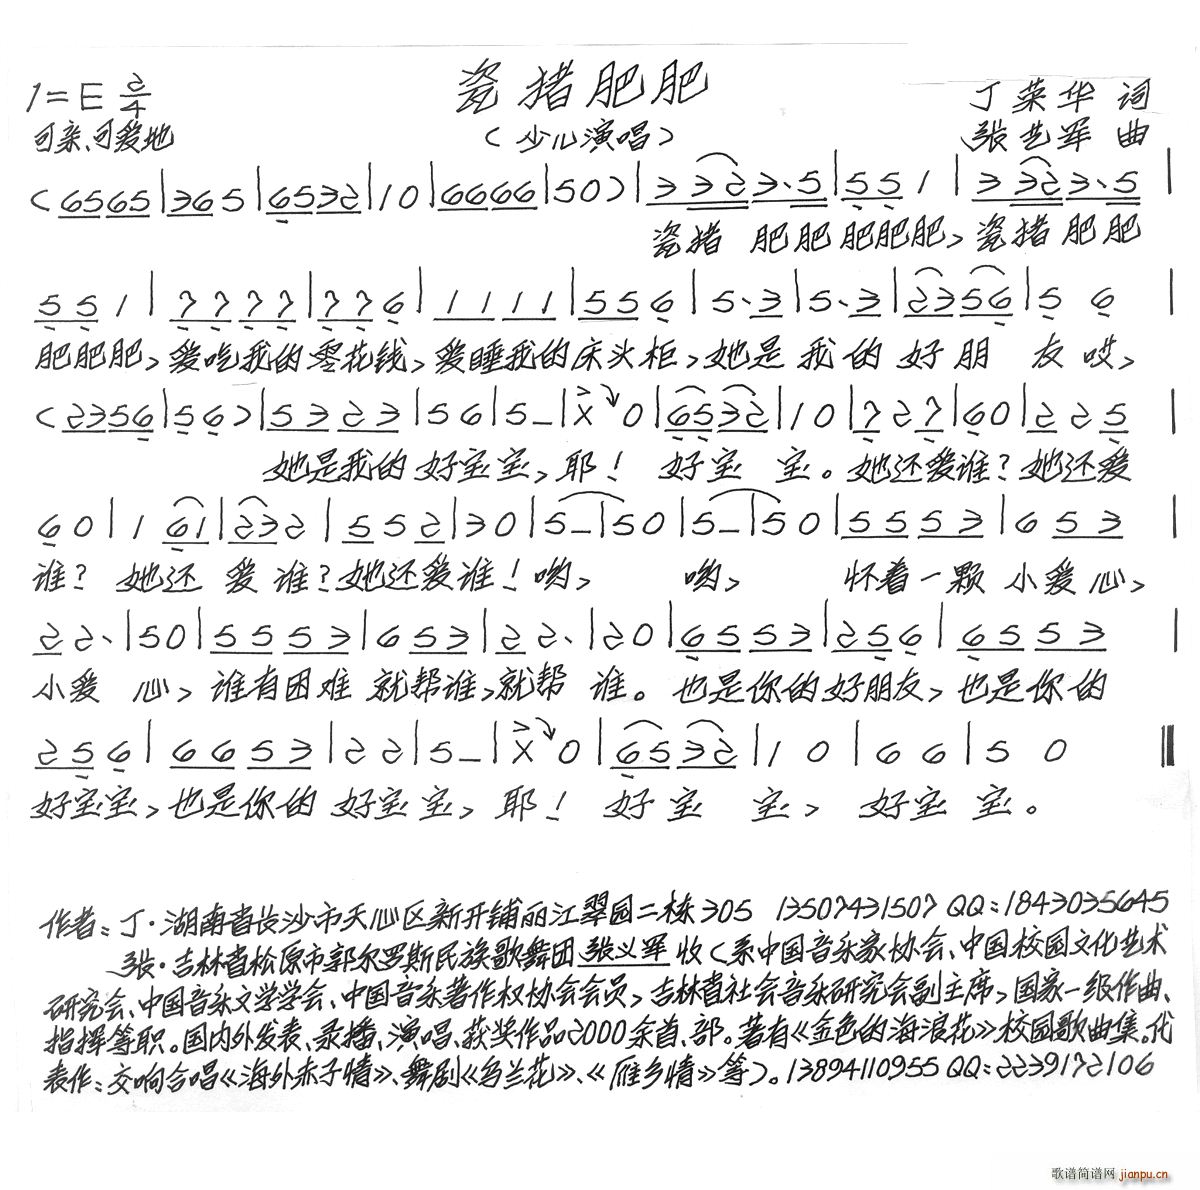 瓷猪肥肥
1=E 2/4
丁荣华 词
可亲、可爱地
（少儿演唱）
张艺军 曲
（6565|365|6532|10|6666|50）|3 323·5|55 1|3 323·5|
瓷猪 肥肥肥肥肥，瓷猪肥肥
55 1|7777|776|1111|556|5·3|5·3|2356|5 6|
肥肥肥，爱吃我的零花钱，爱睡我的床头柜，她是我的好朋 友哎，
（2356|56）|5323|56|5–|X 0|6532|10|727|60|225|
她是我的好宝宝，耶！ 好宝 宝。她还爱谁？她还爱
60|1 61|232|552|30|5–|50|5–|50|5553|653|
谁？ 她还 爱谁？她还爱谁！哟， 哟， 怀着一颗 小爱心，
22·|50|5553|653|22·|20|6553|256|6553
小爱 心，谁有困难 就帮谁，就帮 谁。也是你的好朋友，也是你的
256|6653|22|5–|X 0|6532|1 0|66|5 0‖
好宝宝，也是你的 好宝宝，耶！ 好宝 宝， 好宝宝。
作者：丁·湖南省长沙市天心区新开铺丽江翠园二栋305 13507431507 QQ：1843035645
张·吉林省松原市郭尔罗斯民族歌舞团张义军收（系中国音乐家协会、中国校园文化艺术
研究会、中国音乐文学学会、中国音乐著作权协会会员，吉林省社会音乐研究会副主席，国家一级作曲、
指挥等职。国内外发表、录播、演唱、获奖作品2000余首、部。著有《金色的海浪花》校园歌曲集。代
表作：交响合唱《海外赤子情》、舞剧《乌兰花》、《雁乡情》等）。13894110955 QQ：2239172106
歌谱简谱网 jianpu.cn